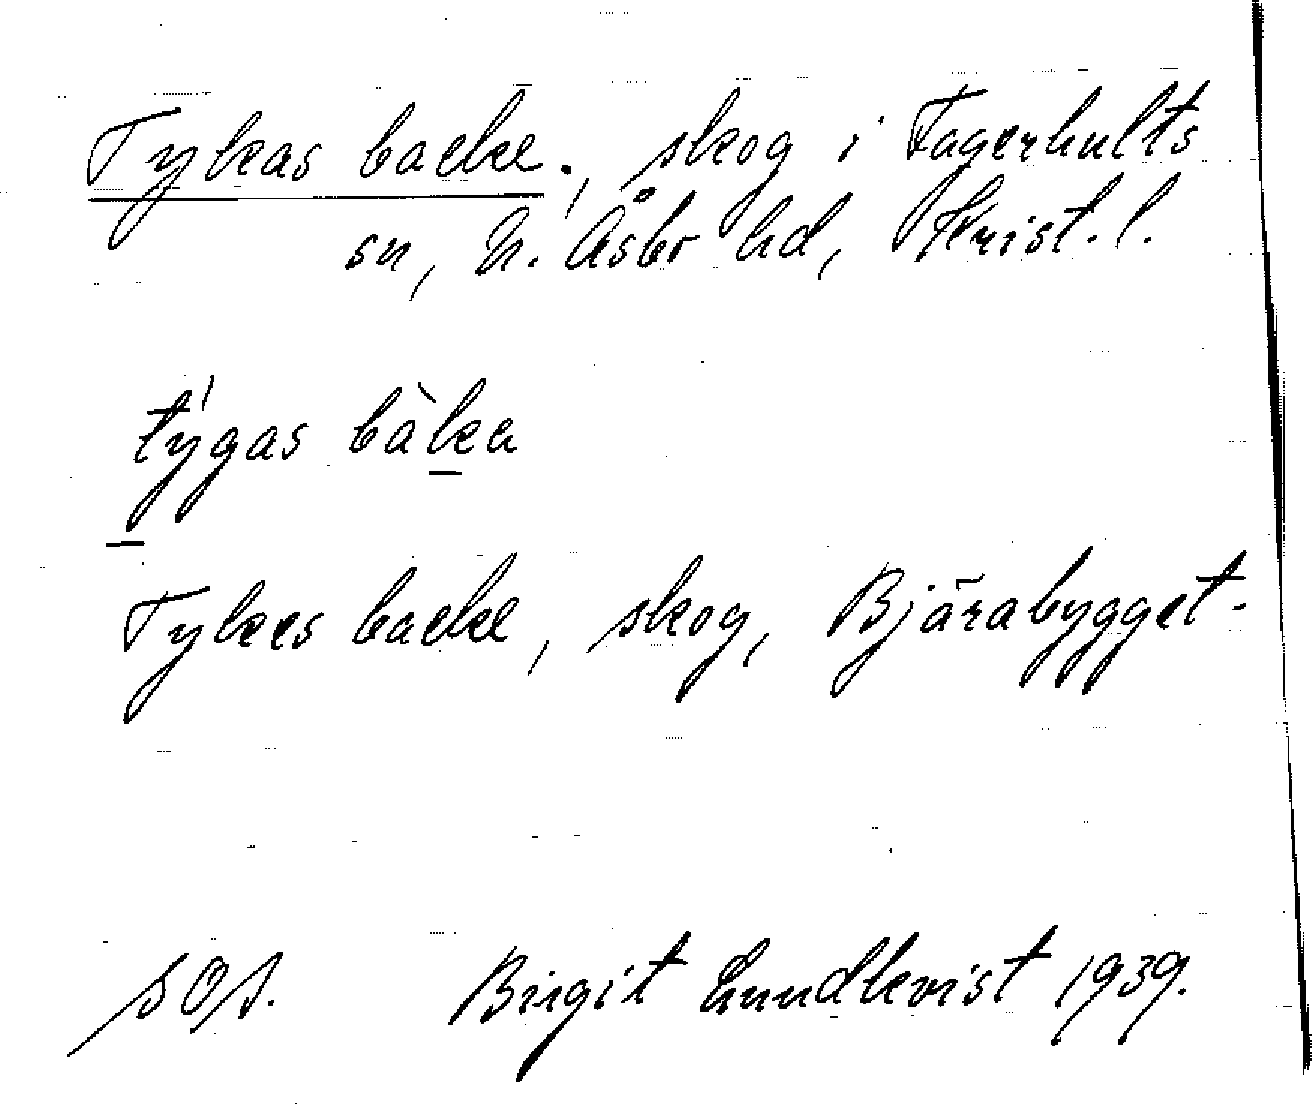 Tykas backe., skog i Fagerhults
sn, N. Åsbo hd, Krist. l.
ty̍gas bàka
Tykes backe, skog, Bjärabygget.
SOS. Birgit Lundkvist 1939.